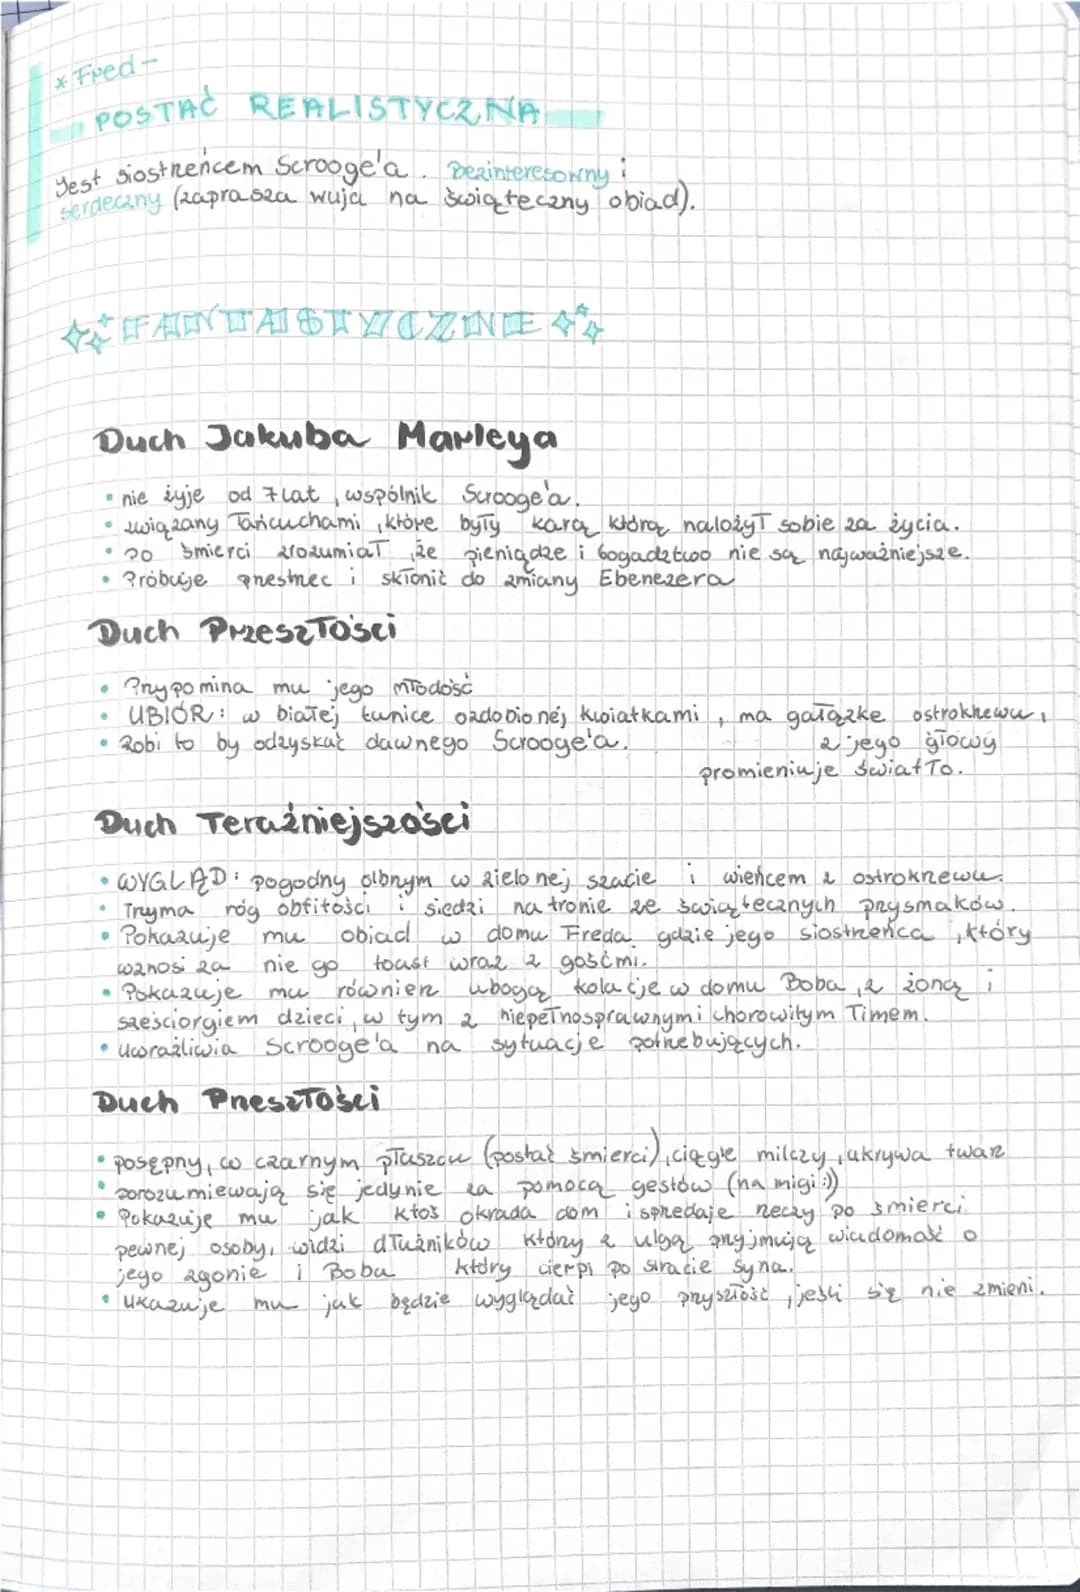 * Fred -
POSTAĆ REALISTYCZNA
Jest siostrzeńcem Scrooge'a. Bezinteresowny i
serdeczny (zaprasza wuja na świąteczny obiad).
FANTASTYCZNE
Duch Jakuba Marleya
• nie żyje od 7 lat, wspólnik Scrooge'a.
• związany łańcuchami, które były karą którą nałożył sobie za życia.
• po śmierci zrozumiał, że pieniądze i bogadztwo nie są najważniejsze.
• Próbuje przestrzec i skłonić do zmiany Ebenezera
Duch Przeszłości
• Przypomina mu jego młodość
• UBIÓR: w białej tunice ozdobionej kwiatkami, ma gałązkę ostrokrzewu,
z jego głowy
promieniuje światło.
• Robi to by odzyskać dawnego Scrooge'a.
Duch Teraźniejszości
• WYGLĄD: pogodny olbrzym w zielonej szacie i wieńcem z ostrokrzewu.
• Trzyma róg obfitości i siedzi na tronie ze świątecznych przysmaków.
• Pokazuje mu obiad w domu Freda gdzie jego siostrzeńca, który
wznosi za niego toast wraz z gośćmi.
• Pokazuje mu również ubogą kolację w domu Boba, z żoną i
sześciorgiem dzieci, w tym z niepełnosprawnym i chorowitym Timem.
• Uwrażliwia Scrooge'a na sytuację potrzebujących.
Duch Przeszłości
• posępny, w czarnym płaszczu (postać śmierci), ciągle milczy, ukrywa twarz
• porozumiewają się jedynie za pomocą gestów (na migi :))
• Pokazuje mu jak ktoś okrada dom i sprzedaje rzeczy po śmierci
pewnej osoby, widzi dłużników który z ulgą przyjmują wiadomość o
jego agonie i Boba który cierpi po stracie syna.
• Ukazuje mu jak będzie wyglądać jego przyszłość, jeśli się nie zmieni.